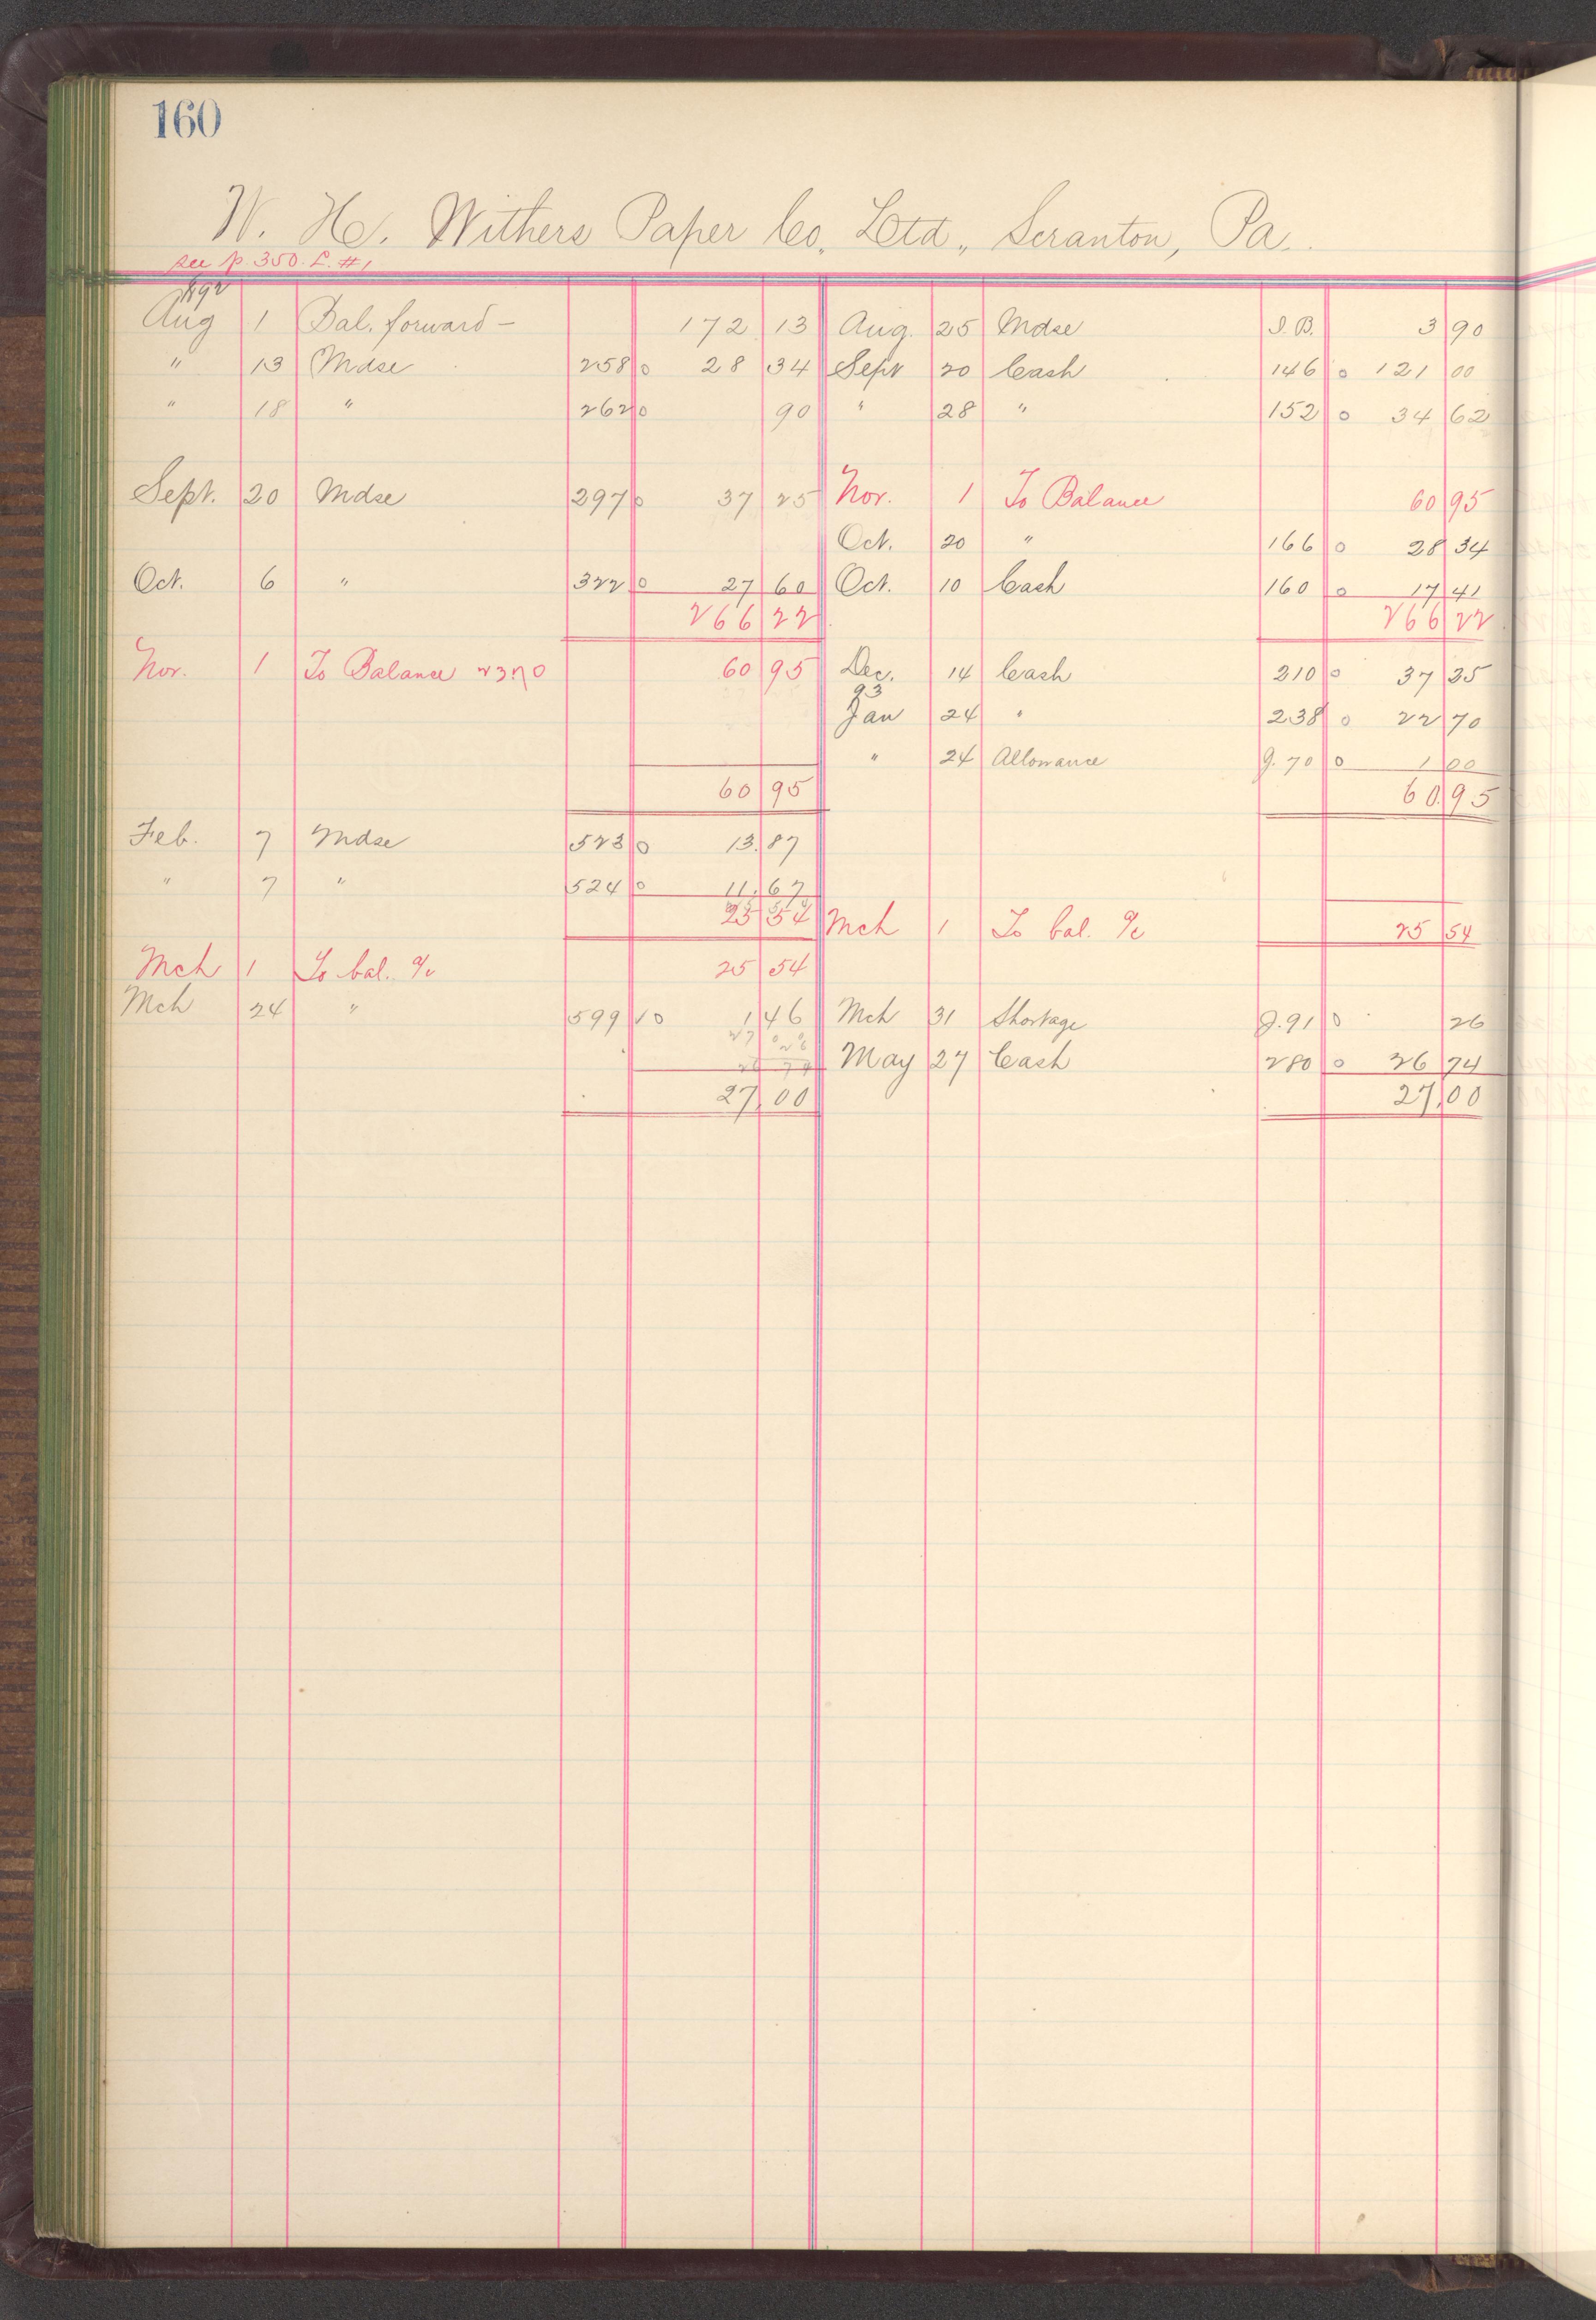 160
W. H. Withers Paper Co., Ltd., Scranton, Pa.
see p. 350. L. #1
Aug 1 Bal. forward — 172 13 Aug. 25 Mdse I.B. 3 90
" 13 Mdse 258 0 28 34 Sept 20 Cash 146 0 121 00
" 18 " 262 0 90 " 28 " 152 0 34 62
Sept. 20 Mdse 297 0 37 25 Nov. 1 To Balance 60 95
Oct. 20 " 166 0 28 34
Oct. 6 " 322 0 27 60 Oct. 10 Cash 160 0 17 41
266 22 266 22
Nov. 1 To Balance 60 95 Dec. 14 Cash 210 0 37 25
93
Jan 24 " 238 0 22 70
" 24 Allowance J. 70 0 1 00
60 95 60 95
Feb. 7 Mdse 523 0 13 87
" 7 " 524 0 11 67
25 54 Mch 1 To bal. % 25 54
Mch 1 To bal. % 25 54
Mch 24 " 599 10 1 46 Mch 31 Shortage J. 91 0 26
May 27 Cash 280 0 26 74
27 00 27 00